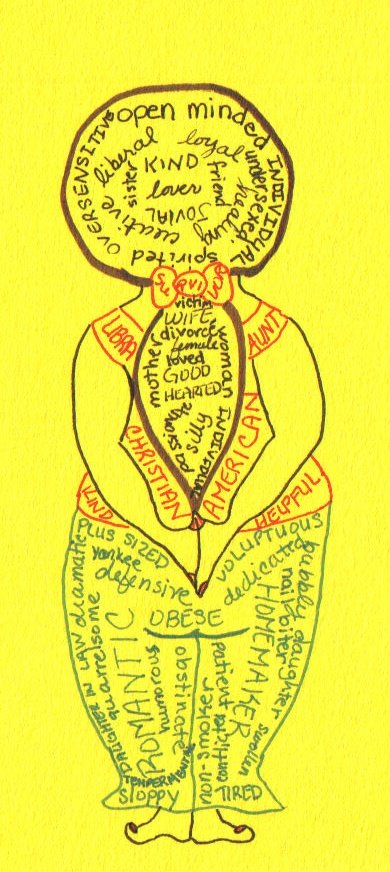 open minded
OVERSENSITIVE
INDIVIDUAL
liberal
loyal
undersexed
creative
sister
KIND
friend
healing
lover
JOVIAL
spirited
SURVIVOR
victim
WIFE
divorce
female
mother
loved
woman
GOOD
HEARTED
silly
INDIVIDUAL
passionate
LIBRA
AUNT
CHRISTIAN
AMERICAN
KIND
HELPFUL
PLUS SIZED
yankee
defensive
dramatic
quarrelsome
DAUGHTER IN LAW
OBESE
ROMANTIC
humorous
obstinate
TEMPERMENTAL
sloppy
VOLUPTUOUS
dedicated
bubbly
daughter
nail biter
HOMEMAKER
patient
non-smoker
TIRED